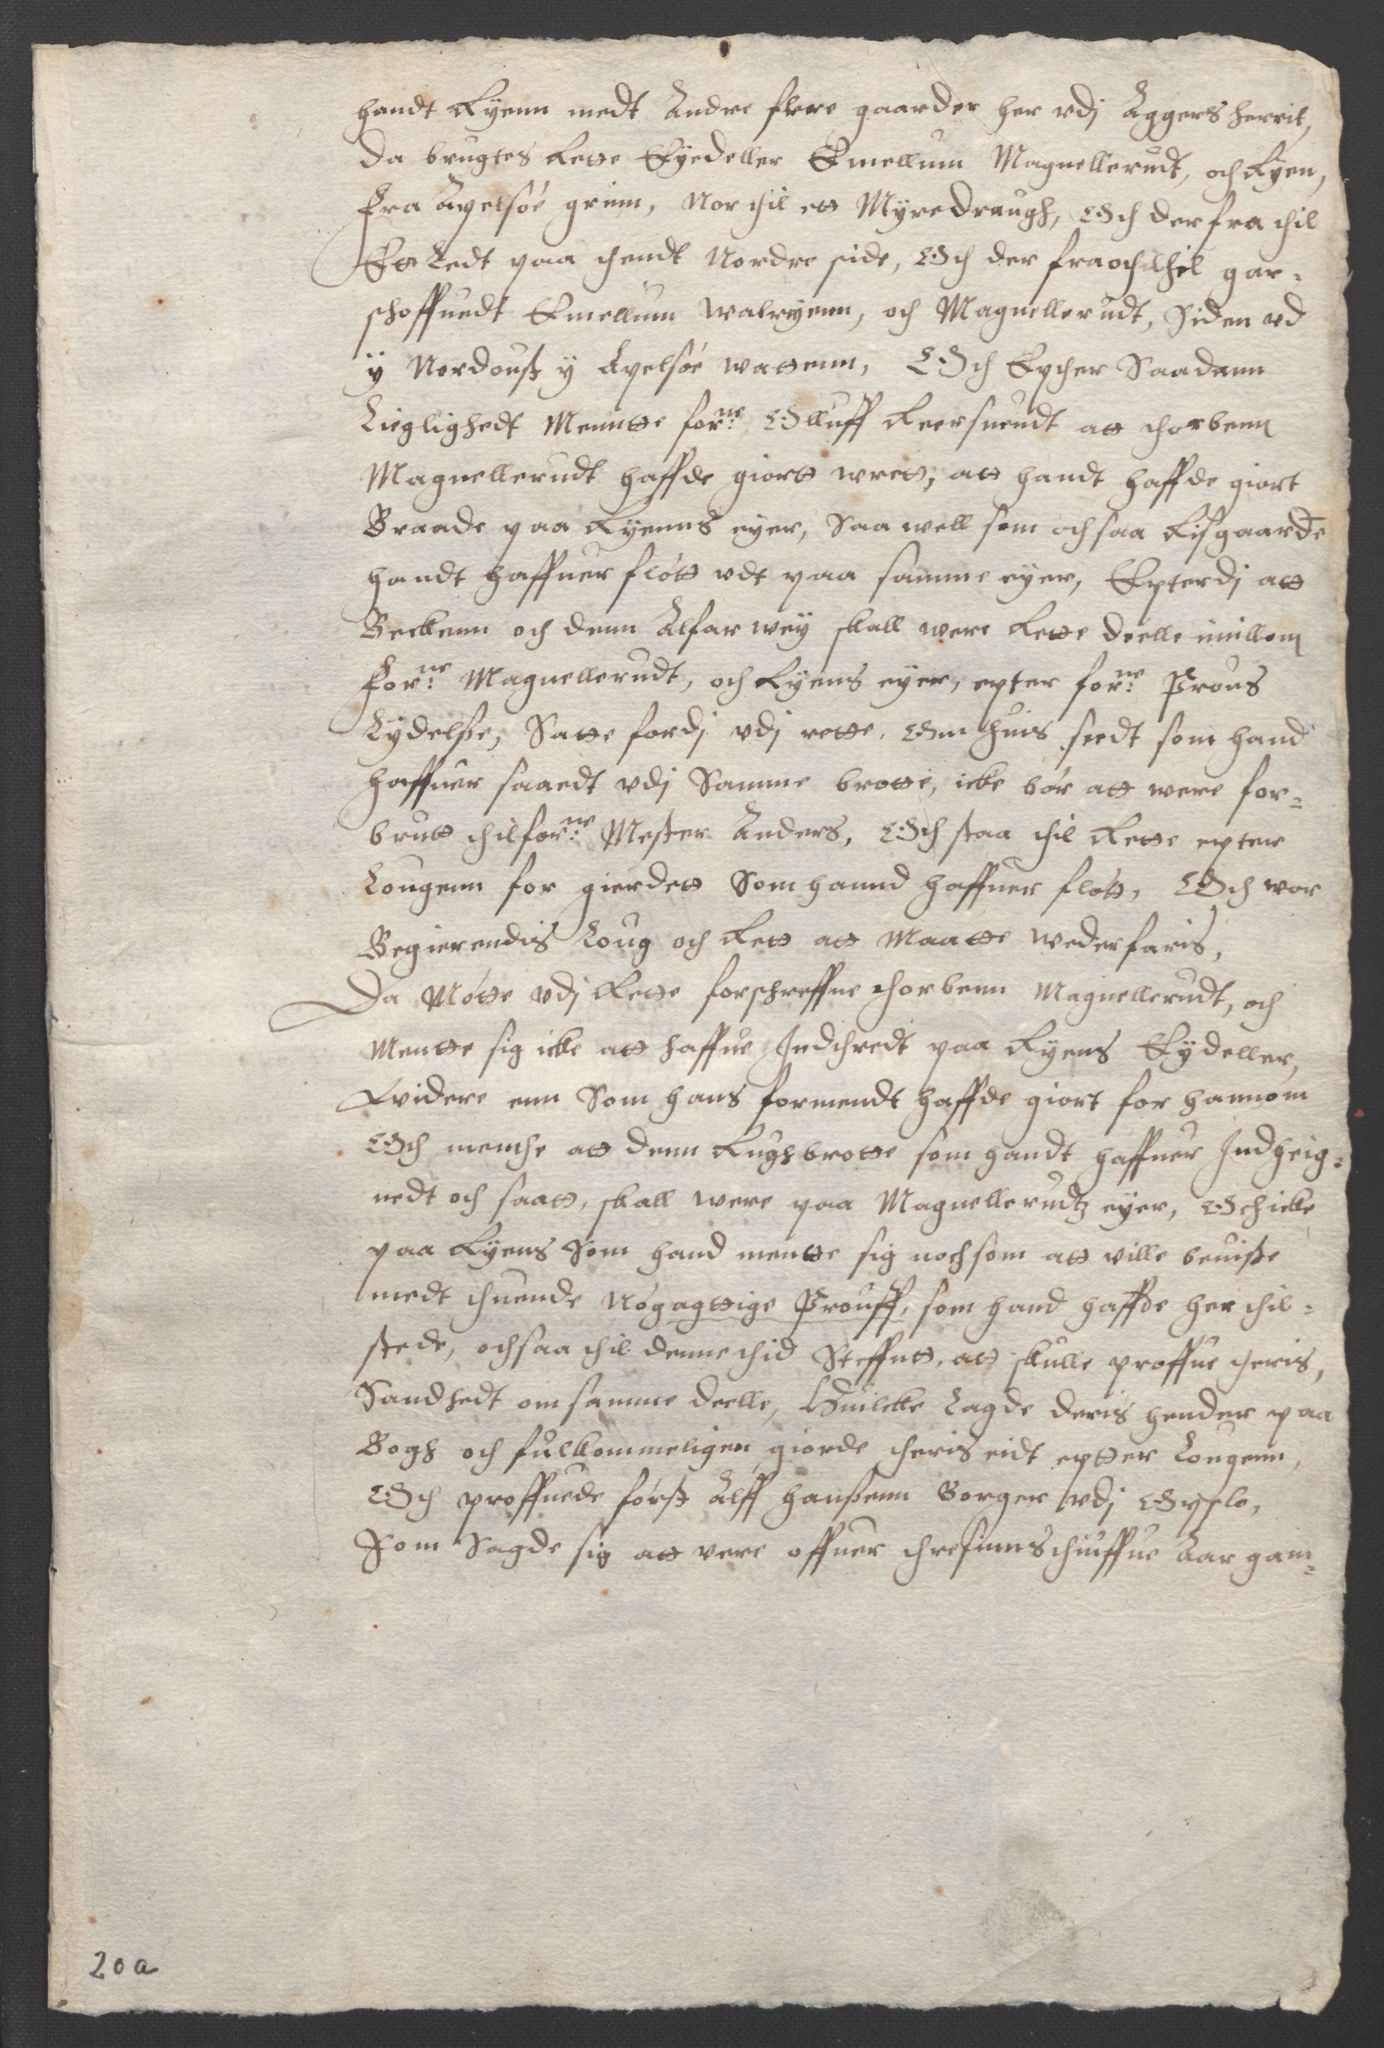 handt Ryenn medt Andre flere gaarder her vdj Aggers herrit,
da brugtes Rette Eyedeller Emellum Magnellerudt, och Ryen,
Fra Apelsøe grinn, Nor thil ett Myredraugh, Och der fra thil
Ett Ledt paa thendt Nordre side, Och der fra och thil gar-
shoffuedt Emellum walryenn, och Magnellerudt, Siden vd
y Nordoust y Epelsøe wattenn, Och Epther Saadann
Lieglighedt Menntte forne: Olluff Reersuendt att thorbenn
Magnellerudt haffde giortt wrett, att handt haffde giort
Braade paa Ryenns eyer, Saa well som ochsaa Risgaarde
handt haffuer fløtt vdt paa samme eyer, Epterdj att
Beckenn och denn Alfar wey skall were Rette deelle imillom
Forne: Magnellerudt, och Ryens eyer, epter forne: Prous
Lydelsse, Satte fordj vdj rette, Om huis siedt som hand
haffuer saaedt vdj Samme brotte, icke bør att were for-
brutt thil forne: Mester Anders, Och staa thil Rette epter
Lougenn for gierdett Som hannd haffuer fløtt, Och war
Begierendis Loug och Rett att Maatte wederfaris,
Da Møtte vdj Rette forschreffne thorbenn Magnellerudt, och
Mentte sig icke att haffue Indthredt paa Ryens Eydeller,
Widere enn Som hans formendt haffde giort for hannom
Och menthe att denn Rughbrotte som handt haffuer Indheig-
nedt och saatt, skall were paa Magnellerudtz eyer, Och icke
paa Ryens Som hand mentte sig nochsom att ville beuisse
medt thuende Nøgagttige Prouff, som hand haffde her thil-
stede, ochsaa thil denne thid Steffntt, att skulle proffue theris,
Sandhedt om samme deelle, Huilcke Lagde deris hender paa
Bogh och fulkommeligen giorde theris eidt eptter Lougenn,
Och proffuede først Alff Hanssenn Borger vdj Opslo,
Som Sagde sig att vere offuer thresinnsthiuffue Aar gam-
20a